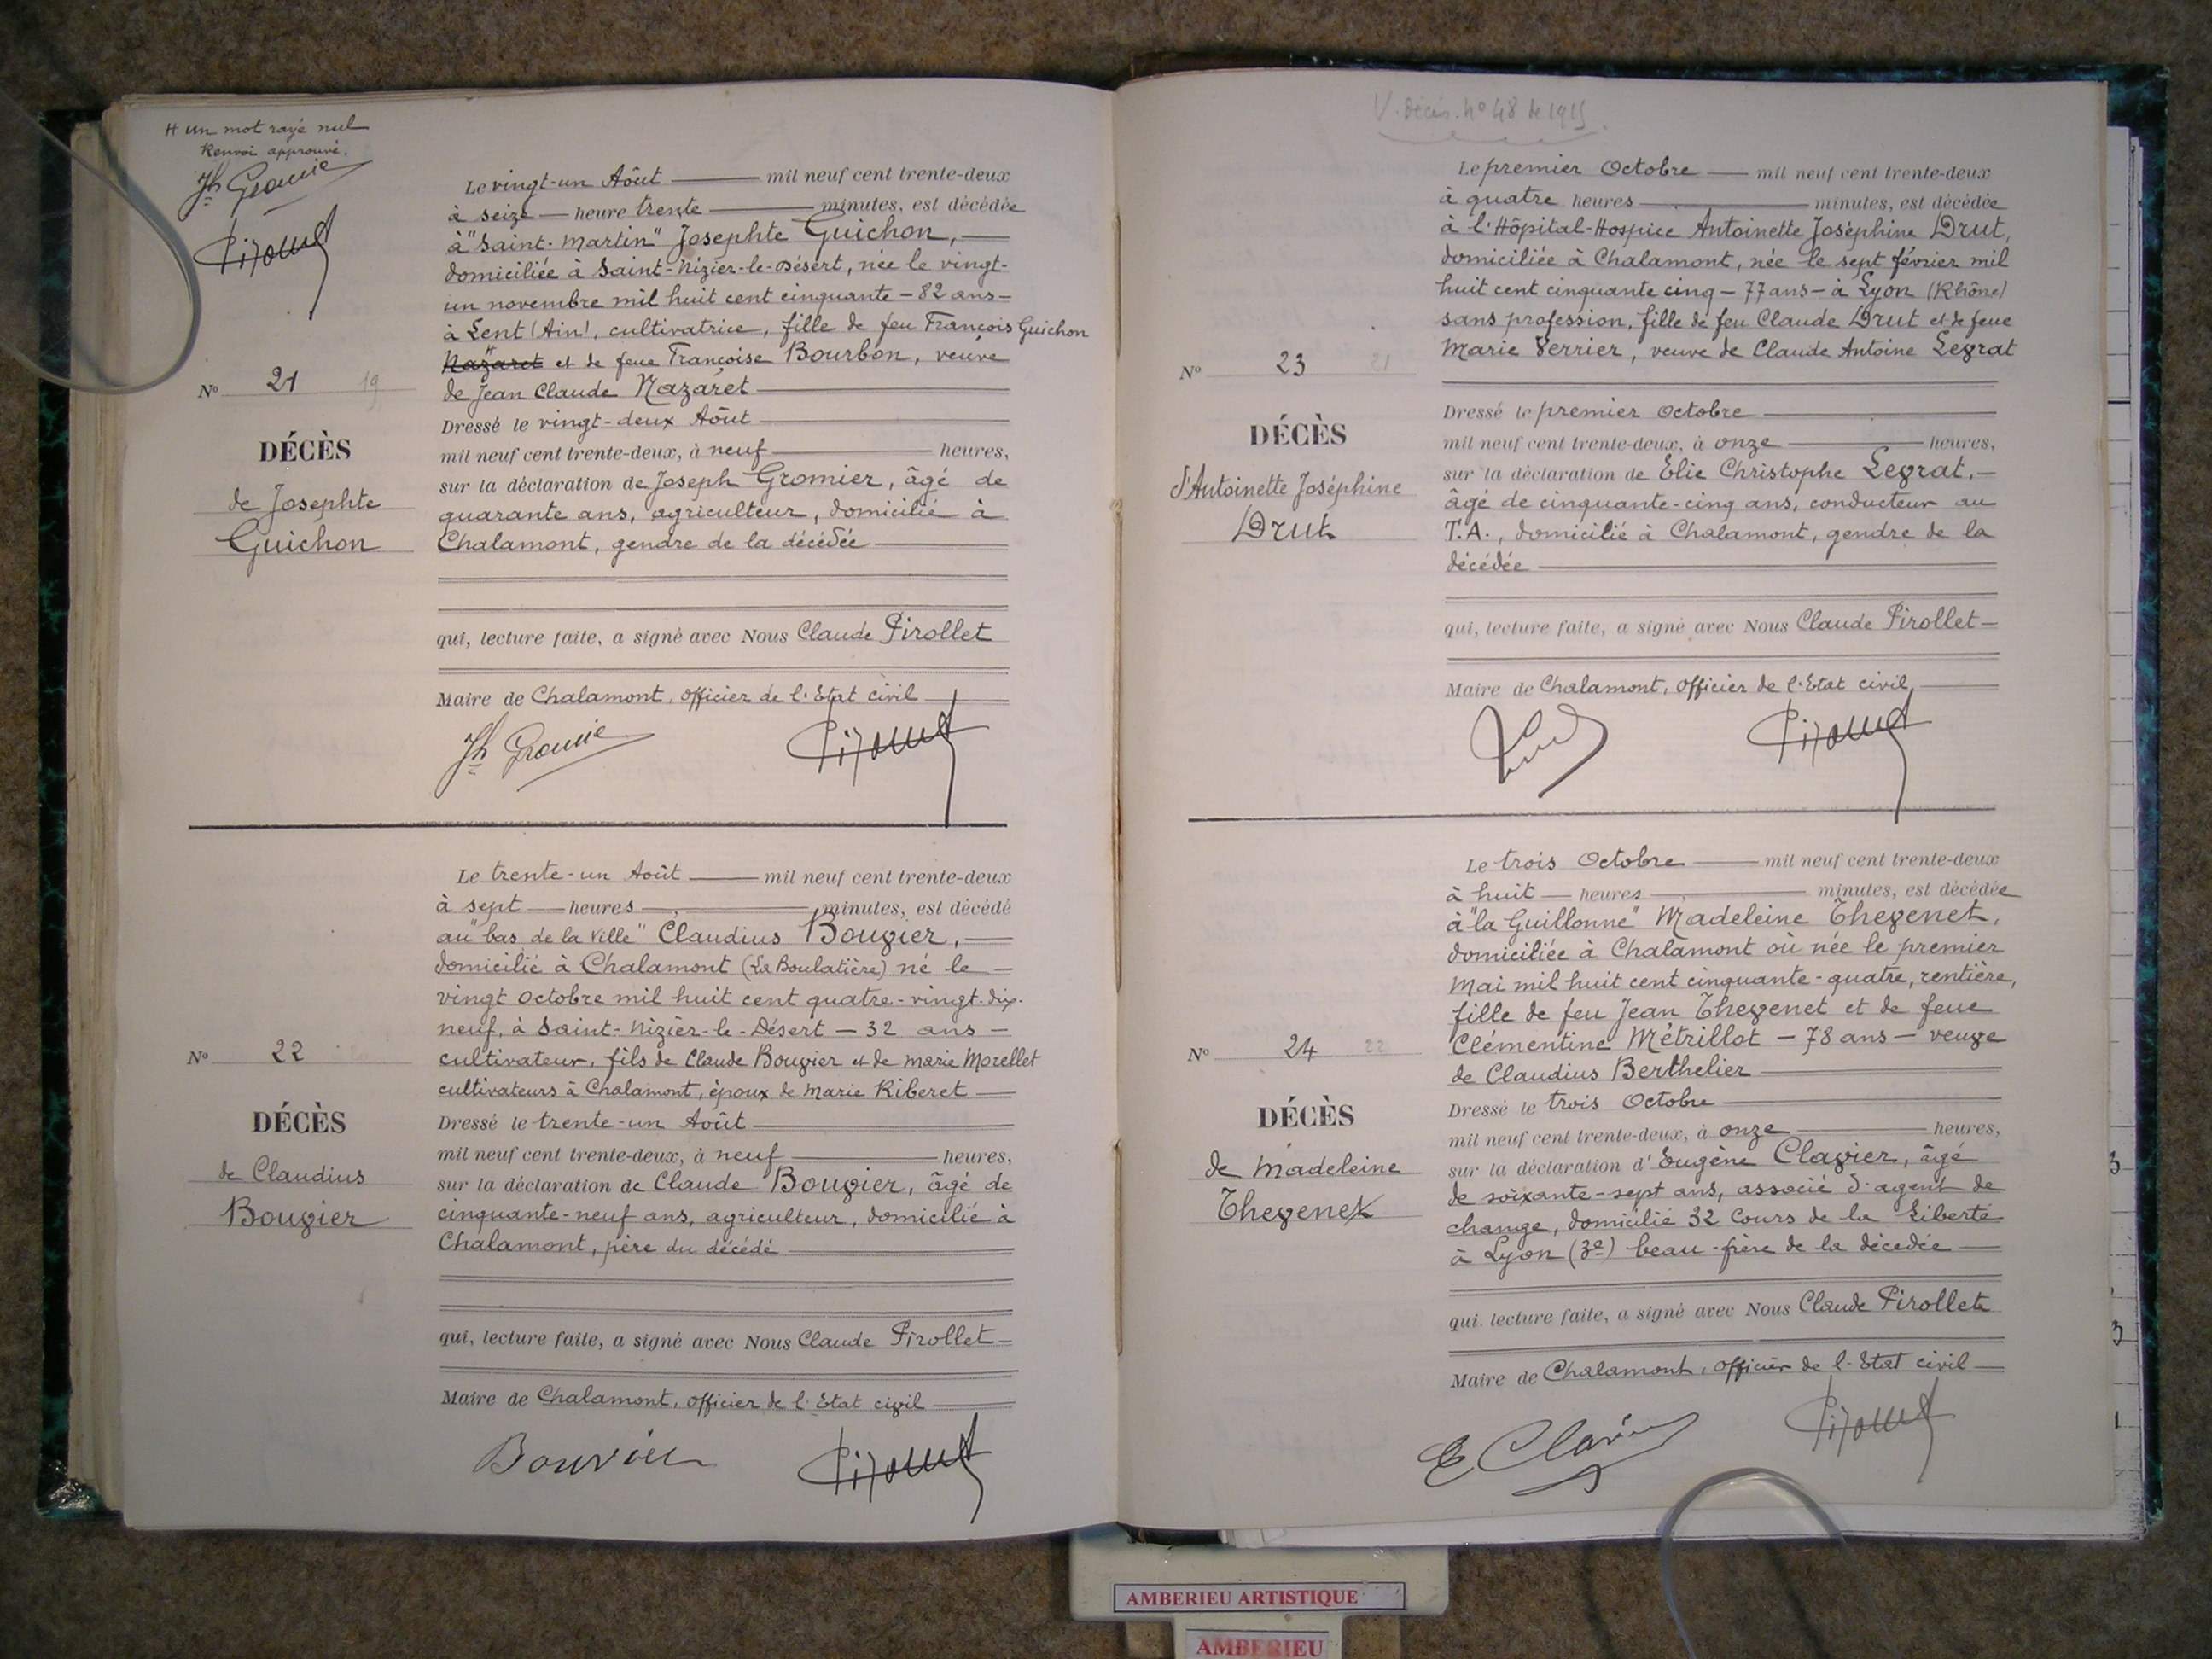 # un mot rayé nul
Renvoi approuvé.
Jh Gromier
Pirollet
Le vingt-un Août mil neuf cent trente-deux
à seize heure trente minutes, est décédée
à "Saint-Martin" Josephte Guichon,
domiciliée à Saint-Nizier-le-Désert, née le vingt-
un novembre mil huit cent cinquante - 82 ans -
à Lent (Ain), cultivatrice, fille de feu François Guichon
Nazaret # et de feue Françoise Bourbon, veuve
de Jean Claude Nazaret
Dressé le vingt-deux Août
mil neuf cent trente-deux, à neuf heures,
sur la déclaration de Joseph Gromier, âgé de
quarante ans, agriculteur, domicilié à
Chalamont, gendre de la décédée
qui, lecture faite, a signé avec Nous Claude Pirollet
Maire de Chalamont, officier de l'Etat civil
Jh Gromier
Pirollet
No 21 19
DÉCÈS
de Josephte
Guichon
Le trente-un Août mil neuf cent trente-deux
à sept heures minutes, est décédé
au "bas de la Ville" Claudius Bouvier,
domicilié à Chalamont (La Boulatière) né le
vingt octobre mil huit cent quatre-vingt-dix-
neuf, à Saint-Nizier-le-Désert - 32 ans -
cultivateur, fils de Claude Bouvier et de Marie Morellet
cultivateurs à Chalamont, époux de Marie Riberet
Dressé le trente-un Août
mil neuf cent trente-deux, à neuf heures,
sur la déclaration de Claude Bouvier, âgé de
cinquante-neuf ans, agriculteur, domicilié à
Chalamont, père du décédé
qui, lecture faite, a signé avec Nous Claude Pirollet
Maire de Chalamont, officier de l'Etat civil
Bouvier
Pirollet
No 22
DÉCÈS
de Claudius
Bouvier
V. décès. n° 48 de 1915
Le premier Octobre mil neuf cent trente-deux
à quatre heures minutes, est décédée
à l'Hôpital-Hospice Antoinette Joséphine Drut,
domiciliée à Chalamont, née le sept février mil
huit cent cinquante cinq - 77 ans - à Lyon (Rhône)
sans profession, fille de feu Claude Drut et de feue
Marie Verrier, veuve de Claude Antoine Legrat
Dressé le premier Octobre
mil neuf cent trente-deux, à onze heures,
sur la déclaration de Elie Christophe Legrat,
âgé de cinquante-cinq ans, conducteur au
T.A., domicilié à Chalamont, gendre de la
décédée
qui, lecture faite, a signé avec Nous Claude Pirollet
Maire de Chalamont, officier de l'Etat civil,
Pirollet
No 23 21
DÉCÈS
d'Antoinette Joséphine
Drut
Le trois Octobre mil neuf cent trente-deux
à huit heures minutes, est décédée
à "la Guillonne" Madeleine Thevenet,
domiciliée à Chalamont où née le premier
Mai mil huit cent cinquante-quatre, rentière,
fille de feu Jean Thevenet et de feue
Clémentine Métrillot - 78 ans - veuve
de Claudius Berthelier
Dressé le trois Octobre
mil neuf cent trente-deux, à onze heures,
sur la déclaration d'Eugène Clavier, âgé
de soixante-sept ans, associé d'agent de
change, domicilié 32 Cours de la Liberté
à Lyon (3e) beau-frère de la décédée
qui, lecture faite, a signé avec Nous Claude Pirollet
Maire de Chalamont, officier de l'Etat civil
E Clavier
Pirollet
No 24 22
DÉCÈS
de Madeleine
Thevenet
AMBERIEU ARTISTIQUE
AMBERIEU